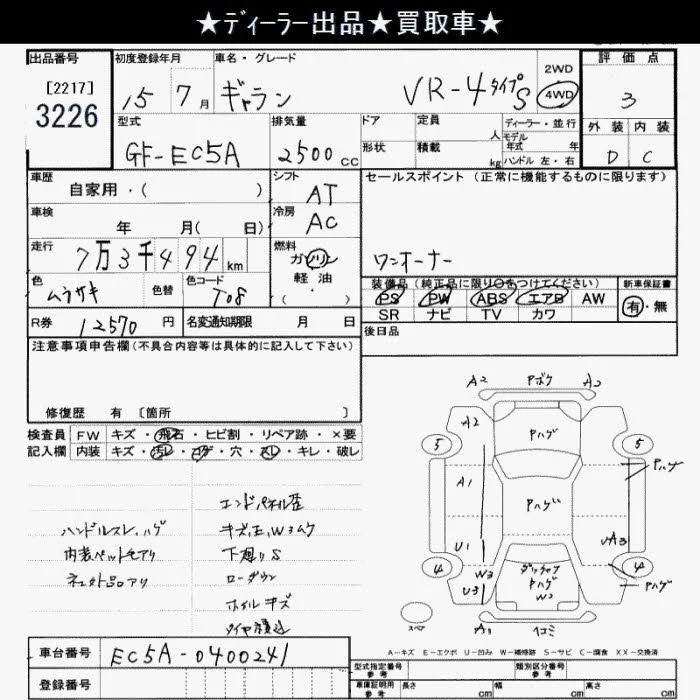 ★ディーラー出品★買取車★
出品番号
[2217]
3226
初度登録年月
15 7月
車名・グレード
ギャラン VR-4 タイプS
2WD
4WD
評価点
3
外装 内装
D C
型式
GF-EC5A
排気量
2500cc
ドア
形状
定員 人
積載 kg
ディーラー・並行
モデル年式 年
ハンドル 左・右
車歴
自家用・( )
シフト
AT
セールスポイント(正常に機能するものに限ります)
ワンオーナー
車検
年 月( 日)
冷房
AC
走行
7万3千494km
燃料
ガソリン
軽油
・( )
色
ムラサキ
色替
色コード
T08
装備品(純正品に限り○をつけてください)
PS PW ABS エアB AW
SR ナビ TV カワ
新車保証書
有・無
R券 12570円
名変通知期限 月 日
後日品
注意事項申告欄(不具合内容等は具体的に記入して下さい)
修復歴 有 〔箇所 〕
検査員 FW キズ・飛石・ヒビ割・リペア跡・×要
記入欄 内装 キズ・汚レ・コゲ・穴・スレ・キレ・破レ
ハンドルスレ、ハゲ
内装ペット毛アリ
ネジ外品アリ
エンドパネル歪
キズ,E,W3ムケ
下廻りS
ローダウン
ホイルキズ
タイヤ積込
A2 Pボケ A2
A2 Pハゲ
5 5
Pハゲ
A1 Pハゲ
U1 UA3
4 W3 4
U3 Pハゲ W2 Pハゲ
スペア
A1 Yコミ
A-キズ E-エクボ U-凹み W-補修跡 S-サビ C-腐食 XX-交換済
車台番号 EC5A-0400241
登録番号
型式指定番号 参考
類別区分番号 参考
車庫証明用 参考
長さ cm 幅 cm 高さ cm